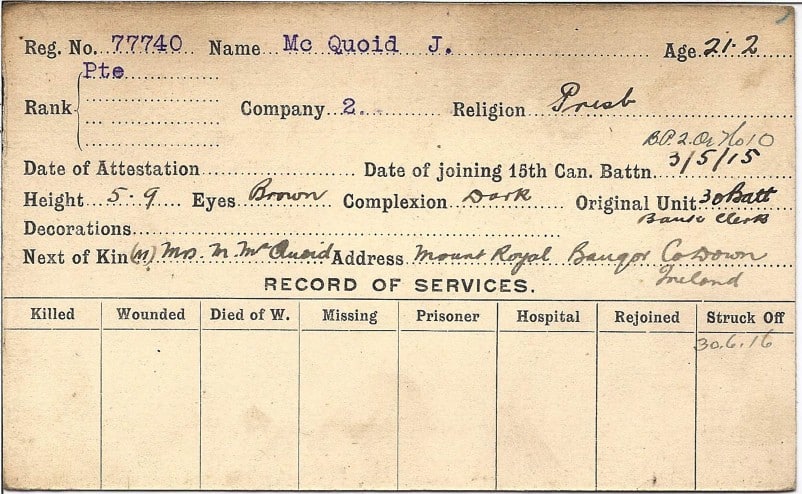 Reg. No. 77740 Name Mc Quoid J. Age 21.2
Pte
Rank Company 2. Religion Presb
B.P.2. Or No 10
Date of Attestation Date of joining 15th Can. Battn. 3/5/15
Height 5.9 Eyes Brown Complexion Dark Original Unit 30 Batt
Decorations Bank Clerk
Next of Kin (M) Mrs. M. McQuoid Address Mount Royal Bangor Co Down
Ireland
RECORD OF SERVICES.
Killed Wounded Died of W. Missing Prisoner Hospital Rejoined Struck Off
30.6.16